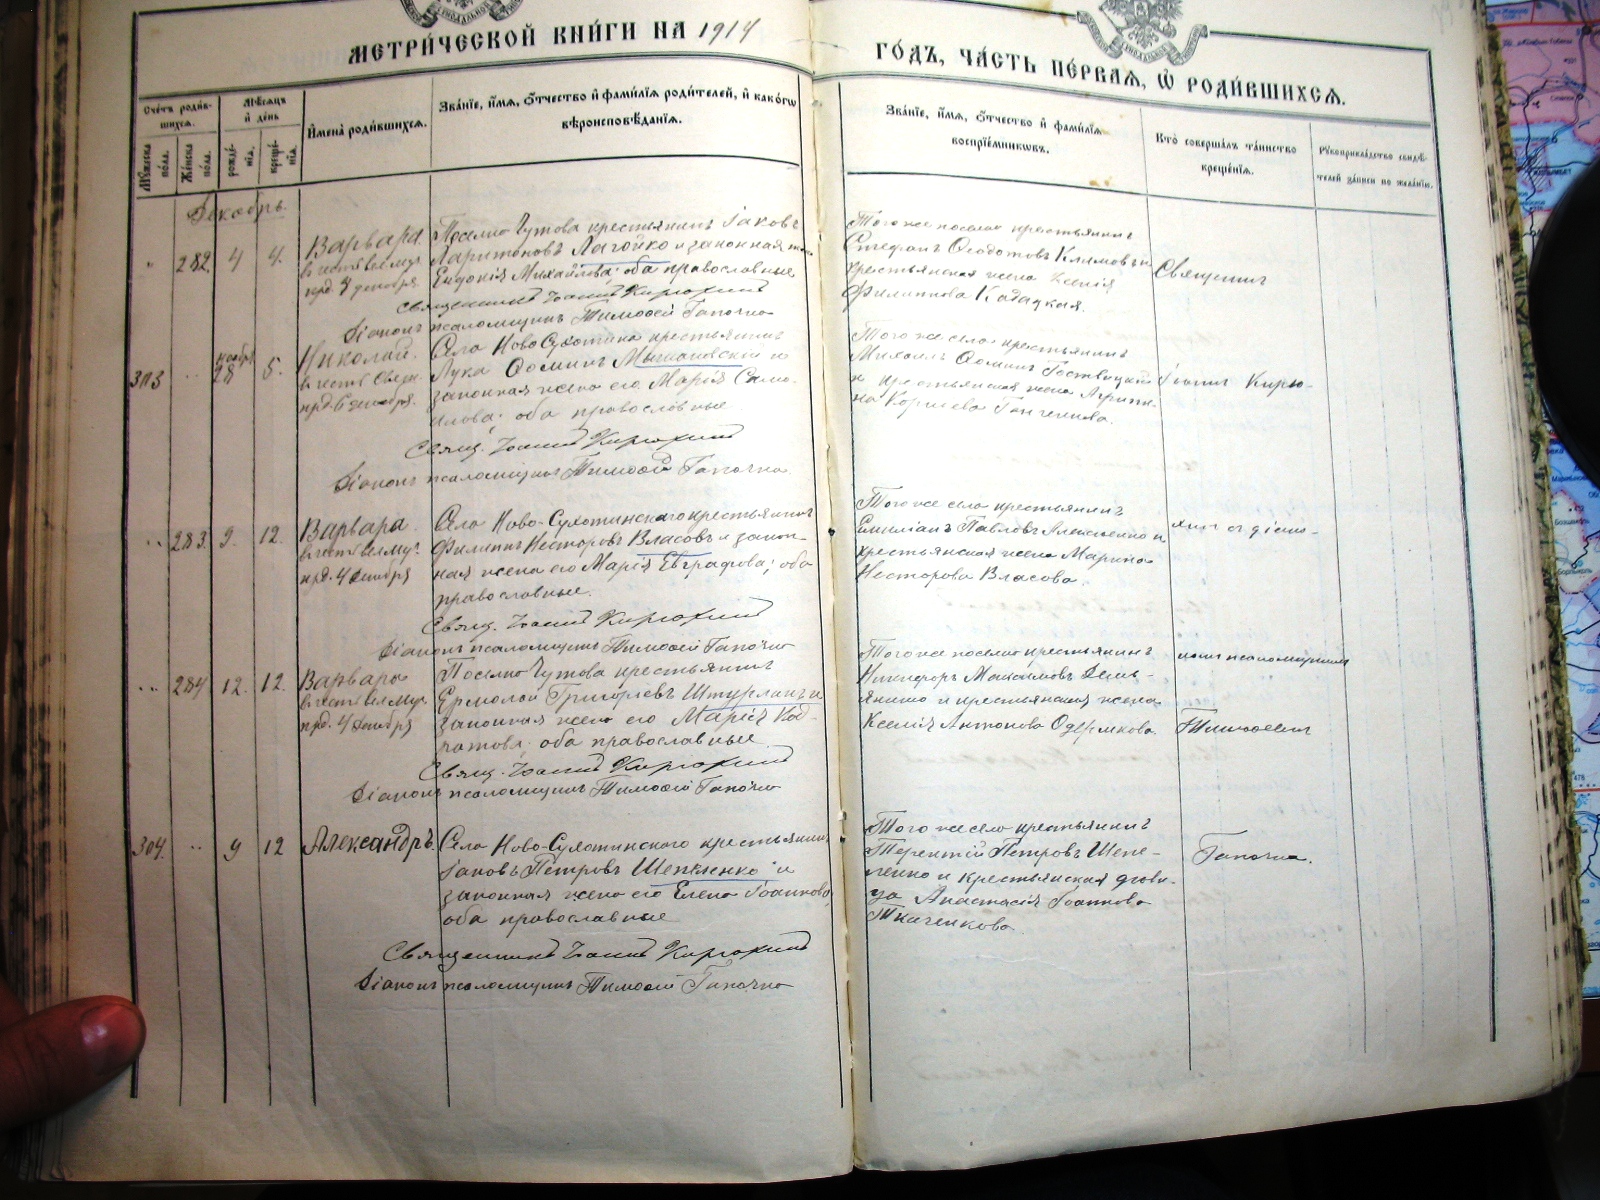 МЕТРИ́ЧЕСКОЙ КНИ́ГИ НА 1914
ГО́ДЪ, ЧА́СТЬ ПЕ́РВАѦ, Ѡ҆ РОДИ́ВШИХСѦ.
Сче́тъ роди́в-
шихсѧ.
Мꙋ́жеска по́ла.
Же́нска по́ла.
Мѣ́сѧцъ
и҆ де́нь
рожде́-
нїѧ.
креще́-
нїѧ.
И҆мена̀ роди́вшихсѧ.
Зва́нїе, и҆́мѧ, ѻ҆́тчество и҆ фами́лїѧ роди́телей, и҆ како́гѡ
вѣроисповѣ́данїѧ.
Зва́нїе, и҆́мѧ, ѻ҆́тчество и҆ фами́лїѧ
воспрїе́мникѡвъ.
Кто̀ соверша́лъ та́инство
креще́нїѧ.
Рꙋкоприкла́дство свидѣ́-
телей за́писи по жела́нїю.
Декабрь.
282. 4 4.
Варвара
въ честь вел. муч.
прд. 4 декабря.
Поселка Чутова крестьянинъ Іаковъ
Харитоновъ Лагойко и законная жена
Евдокія Михайлова; оба православные
Священникъ Іоаннъ Кирюхинъ
Діаконъ псаломщикъ Тимоѳей Гапочка
Того же поселка крестьянинъ
Стефанъ Ѳеодотовъ Климовъ и
крестьянская жена Ксенія
Филиппова Кадацкая.
Священник
303 ноября 28 5.
Николай.
прд. 6 декабря.
Села Ново Сухотина крестьянинъ
Лука Ѳоминъ Мышановскій и
законная жена его Марія Само-
илова; оба православные
Свящ. Іоаннъ Кирюхинъ
Діаконъ псаломщикъ Тимоѳей Гапочка.
Того же села крестьянинъ
Михаилъ Ѳоминъ
и крестьянская жена Агрипи-
на Корнеева Ганченкова.
Іоаннъ Кирю-
283. 9. 12.
Варвара
въ честь вел. муч.
прд. 4 декабря
Села Ново-Сухотинскаго крестьянинъ
Филиппъ Несторовъ Власовъ и закон-
ная жена его Марія Евграфова; оба
православные.
Свящ. Іоаннъ Кирюхинъ
Діаконъ псаломщикъ Тимоѳей Гапочка
Того же села крестьянинъ
Емиліанъ Павловъ Алексеенко и
крестьянская жена Марина
Несторова Власова.
хинъ съ діако-
284 12. 12.
Варвара
въ честь вел. муч.
прд. 4 декабря
Поселка Чутова крестьянинъ
Ермолай Григорьевъ Штурлакъ и
законная жена его Марія Код-
ратова; оба православные
Свящ. Іоаннъ Кирюхинъ
Діаконъ псаломщикъ Тимоѳей Гапочка
Того же поселка крестьянинъ
Никифоръ Максимовъ Демь-
яненко и крестьянская жена
Ксенія Антонова
номъ псаломщикомъ
Тимоѳеемъ
304. 9 12
Александръ.
Села Ново-Сухотинского крестьянинъ
Іаковъ Петровъ Шепеленко и
законная жена его Елена Іоаннова,
оба православные
Священникъ Іоаннъ Кирюхинъ
Діаконъ псаломщикъ Тимоѳей Гапочка
Того же села крестьянинъ
Терентій Петровъ Шепе-
ленко и крестьянская дѣви-
ца Анастасія Іоаннова
Ткаченкова.
Гапочка.